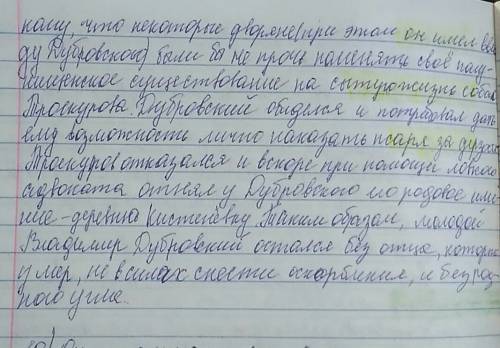 кому, что некоторые дворяне(при этом он имел вви
ду Дубровского) были бы не прочь поменять своё полу-
нищенское существование на сытую жизнь собак
Троекурова. Дубровский обиделся и потребовал дать
ему возможность лично наказать псаря за дерзость
Троекуров отказался и вскоре при помощи ловкого
адвоката отнял у Дубровского его родовое име
ние - деревню Кистенёвку. Таким образом, молодой
Владимир Дубровский остался без отца, который
умер, не в силах снести оскорбления, и без род
ного угла.